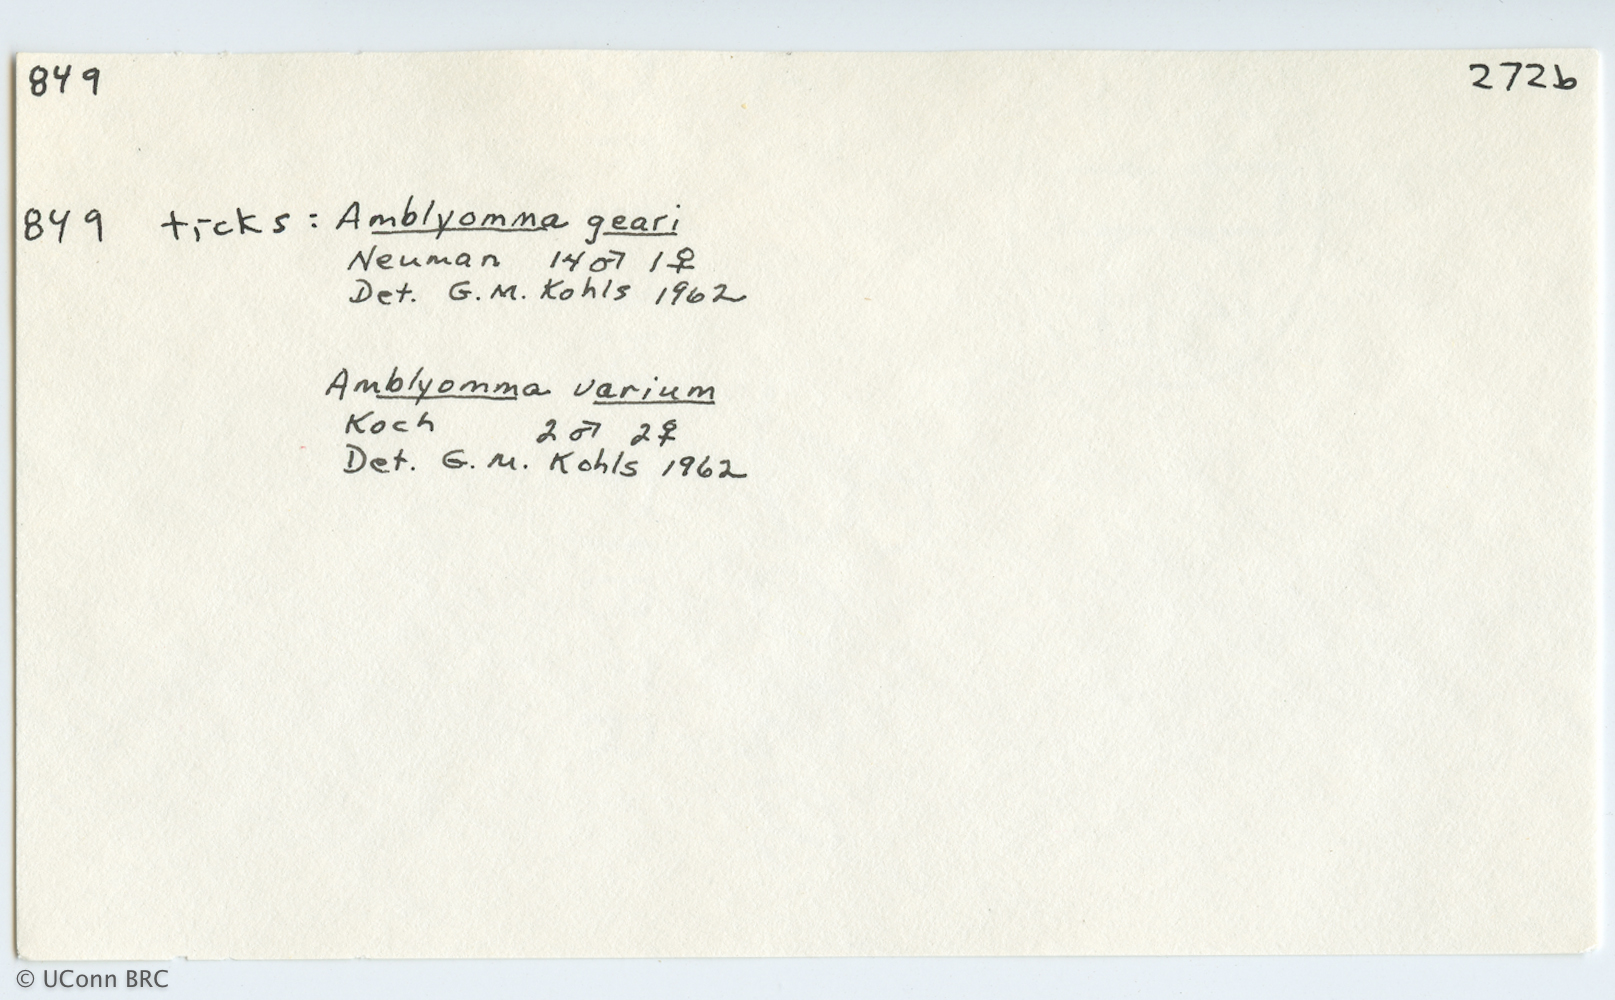 849 272b
849 ticks: Amblyomma geari
Neuman 14♂ 1♀
Det. G.M. Kohls 1962
Amblyomma varium
Koch 2♂ 2♀
Det. G.M. Kohls 1962
© UConn BRC